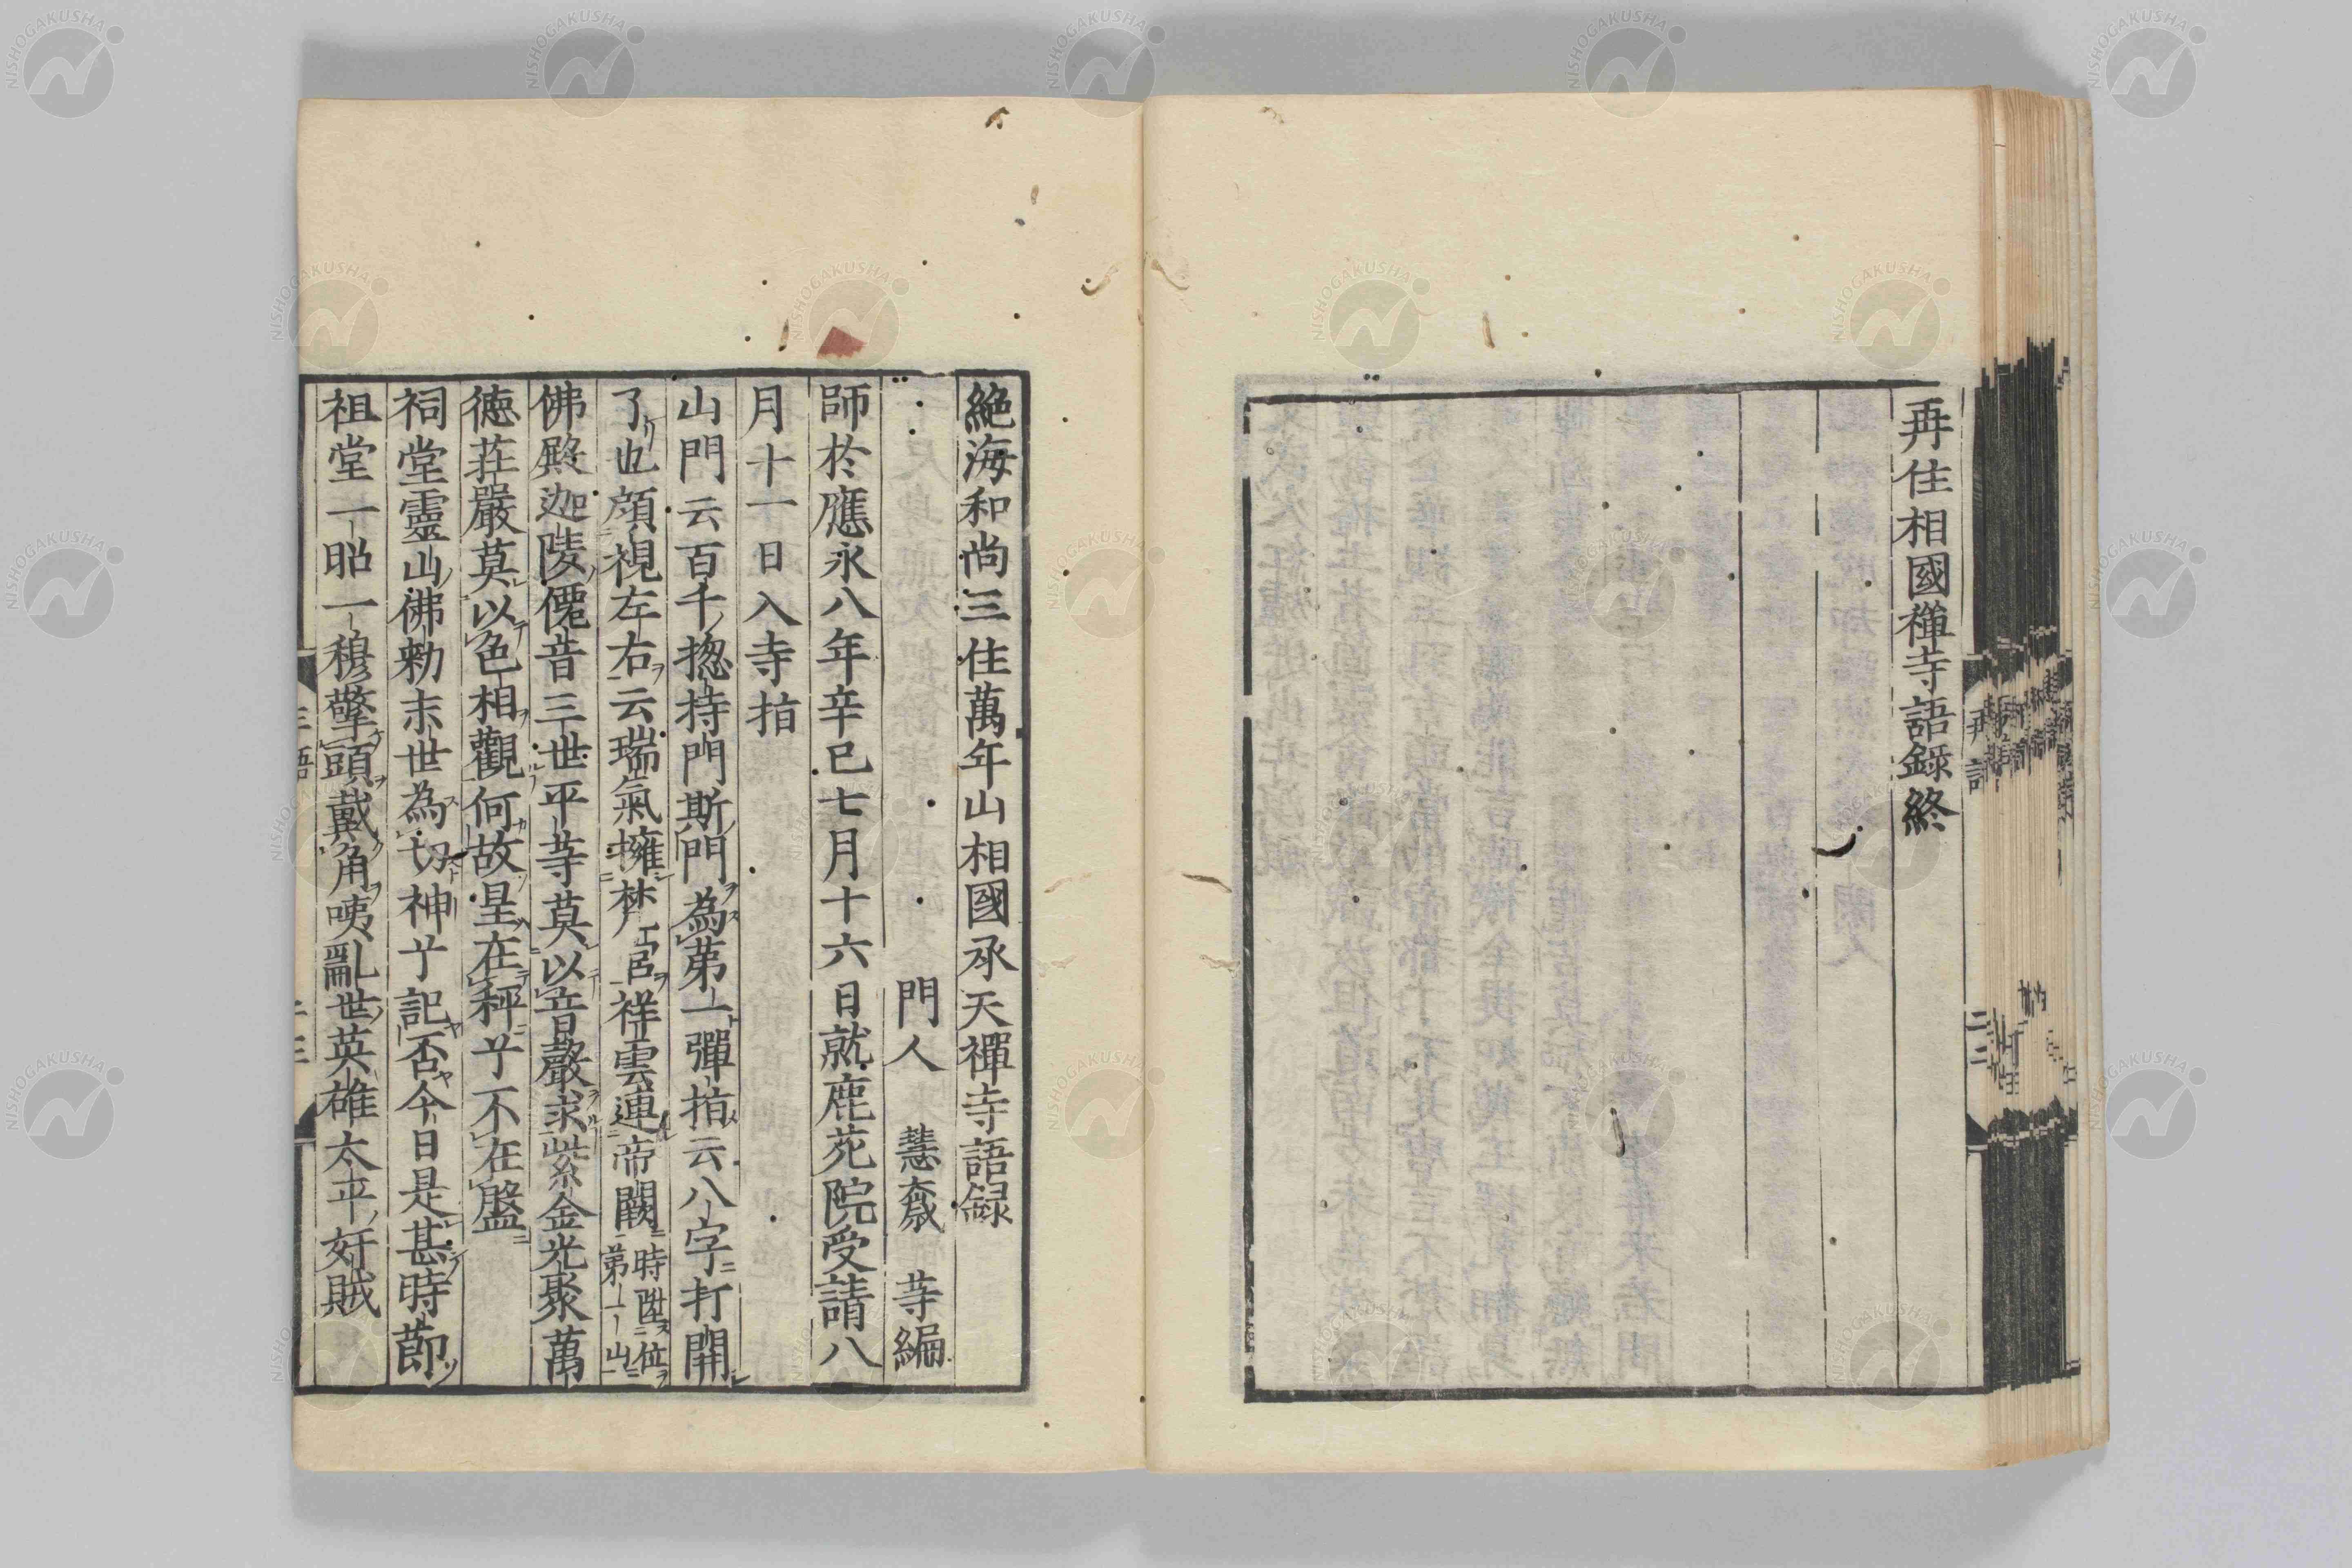 再住相國禪寺語錄終
絶海和尚三住萬年山相國承天禪寺語録
門人 慧奯 等編
師於應永八年辛巳七月十六日就鹿苑院受請八
月十一日入寺指
山門云百千揔持門斯門為第一彈指云八字打開
了也顔視左右云瑞氣擁梵宮祥雲連帝闕時陞位第一山
佛殿迦陵僊音三世平等莫以音聲求紫金光聚萬
德莊嚴莫以色相觀何故星在秤兮不在盤
祠堂靈山佛勅末世為切神兮記否今日是甚時節
祖堂一昭一穆擎頭戴角咦亂世英雄太平奸賊
三語
二三
再語
二二
NISHOGAKUSHA